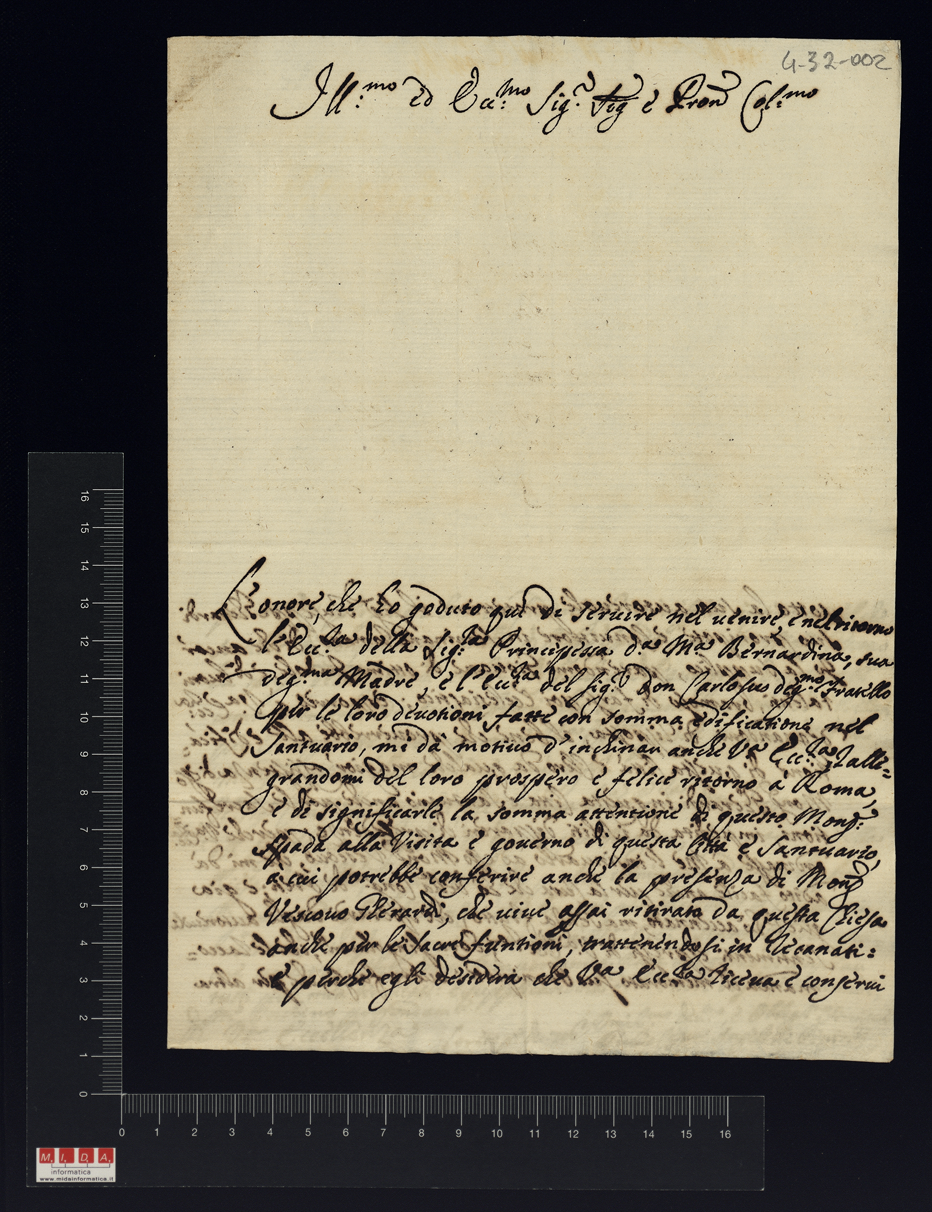 4-32-002
Ill:mo ed Ecc:mo Sig.r Sig e Pron Col:mo
L'onore, che ho goduto qui di servire nel venire, e nel ritorno
l'Ecc:za della Sig:ra Principessa d.a M.a Bernardina, sua
deg:ma Madre, e l'Ecc:za del Sig.r Don Carlo suo deg:mo Fratello
per le loro devotioni fatte con somma edificatione nel
Santuario, mi dà motivo d'inchinar anche V.a Ecc:za, ralle=
grandomi del loro prospero e felice ritorno à Roma,
e di significarle la somma attentione di questo Mong:r
Spada alla Visita e governo di questa Città e Santuario,
a cui potrebbe conferire anche la presenza di Mong.r
Vescovo Gherardi, che vive assai ritirato da questa Chiesa
anche per le sacre funtioni, trattenendosi in Recanati:
E perche egli desidera che V.a Ecc:za riceva e conservi
16
15
14
13
12
11
10
9
8
7
6
5
4
3
2
1
0
0 1 2 3 4 5 6 7 8 9 10 11 12 13 14 15 16
M.I.D.A.
informatica
www.midainformatica.it